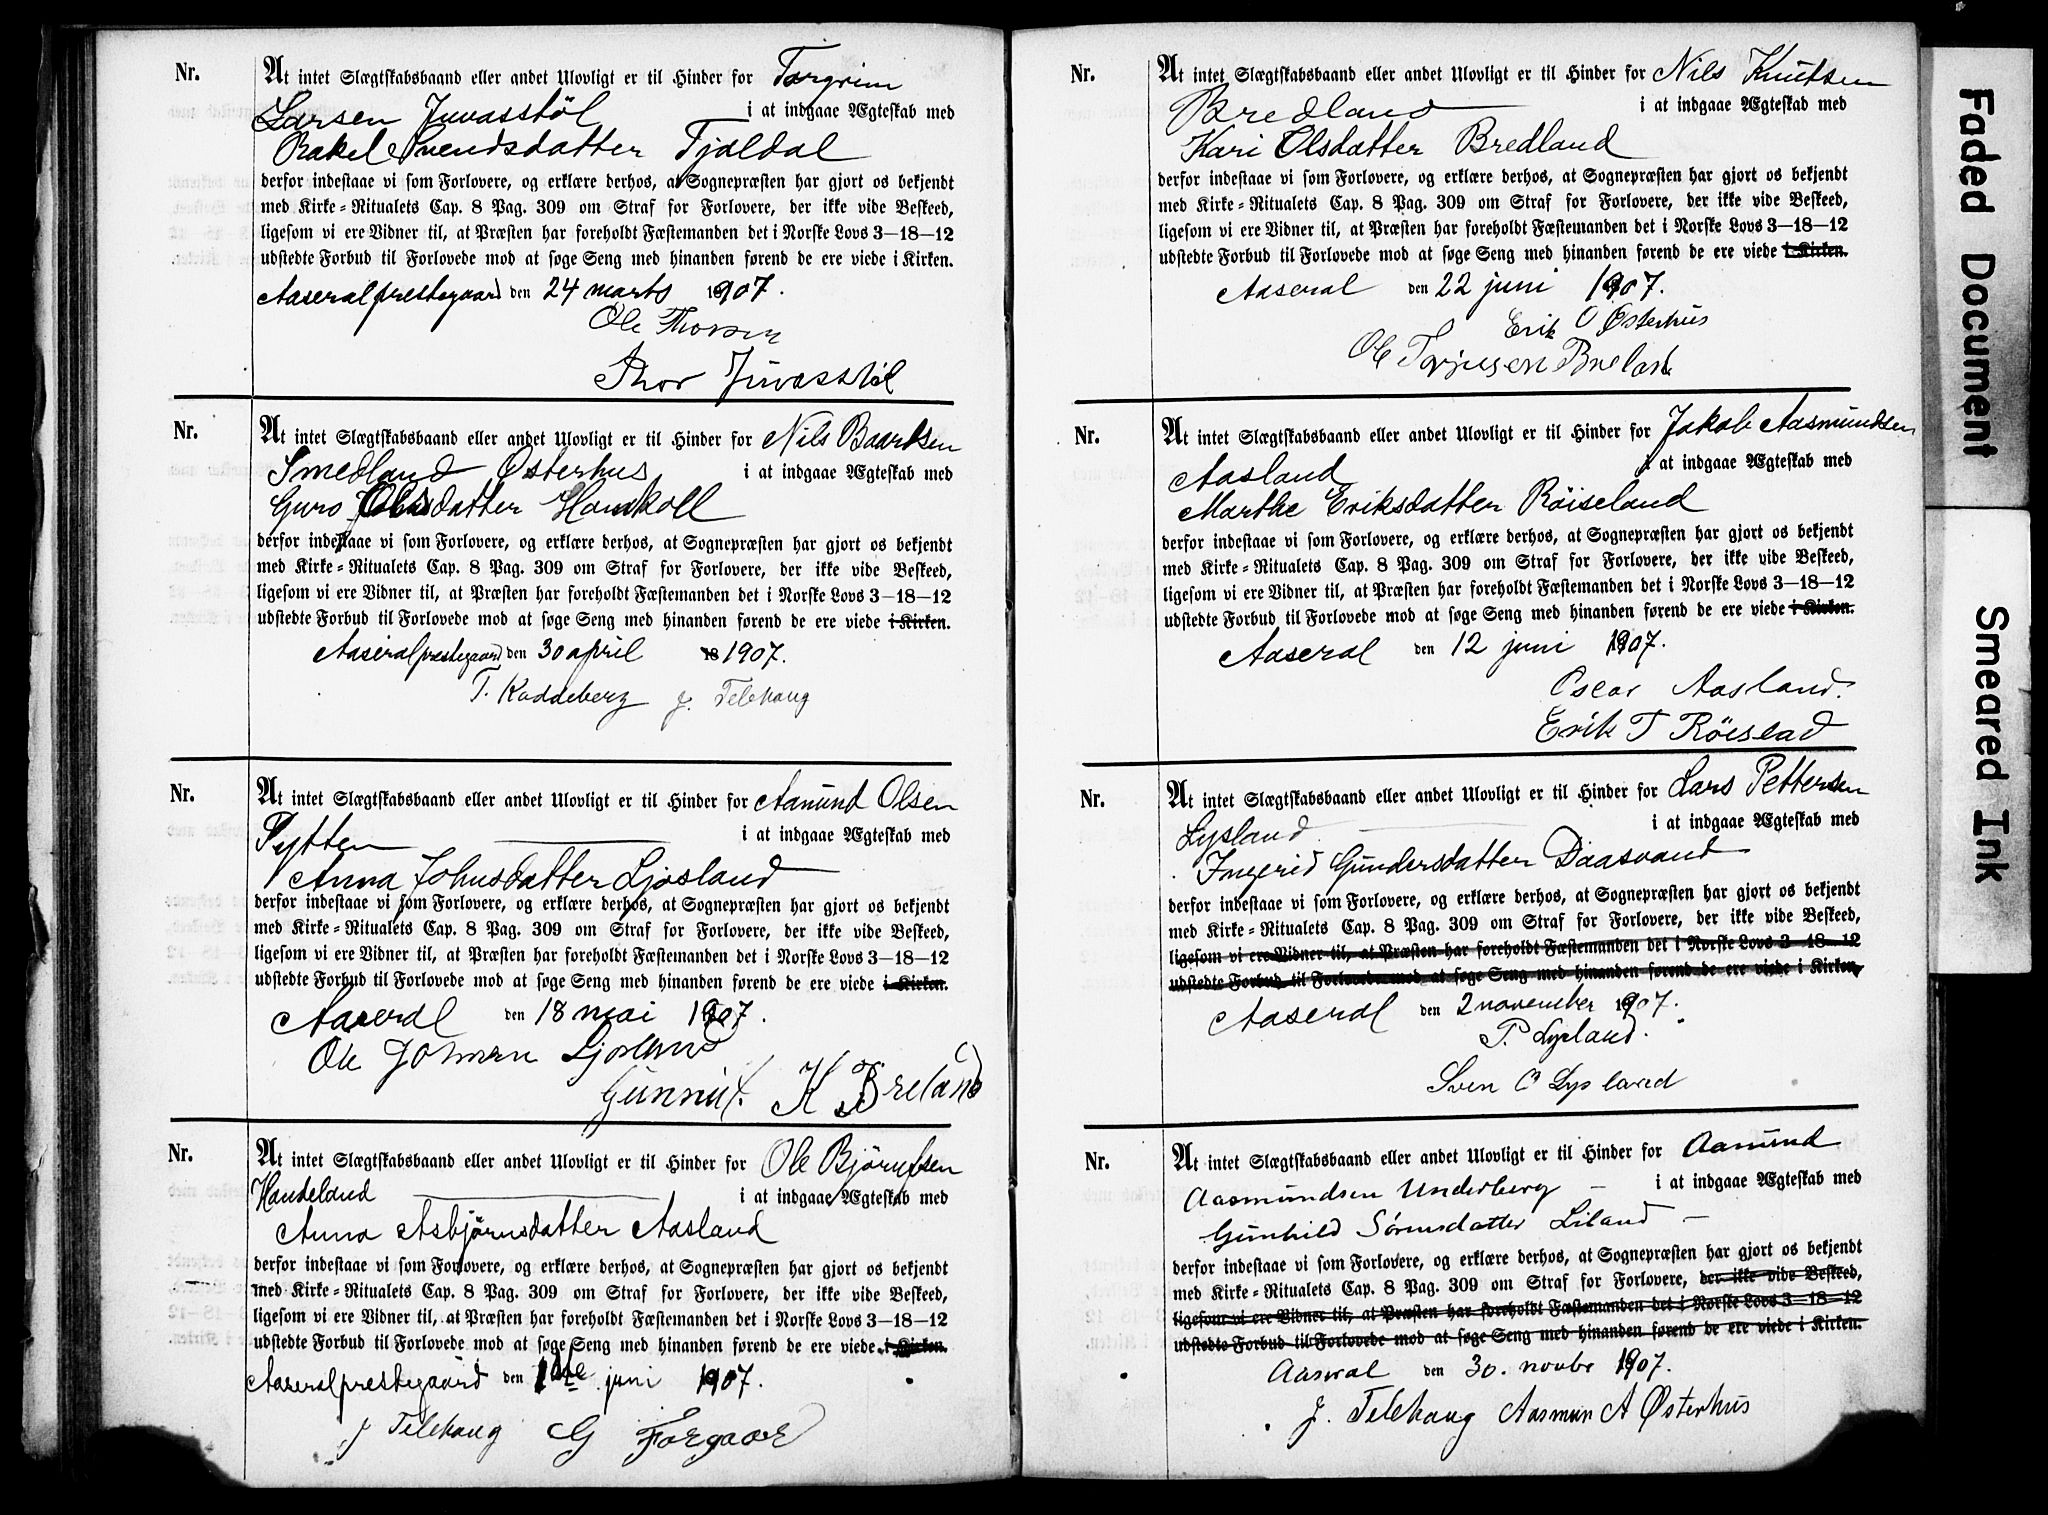 Nr. At intet Slægtskabsbaand eller andet Ulovligt er til Hinder for Torgrim
Larsen Juvasstöl i at indgaae Ægteskab med
Rakel Svendsdatter Tjaldal
derfor indestaae vi som Forlovere, og erklære derhos, at Sognepræsten har gjort os bekjendt
med Kirke-Ritualets Cap. 8 Pag. 309 om Straf for Forlovere, der ikke vide Beskeed,
ligesom vi ere Vidner til, at Præsten har foreholdt Fæstemanden det i Norske Lovs 3—18—12
udstedte Forbud til Forlovede mod at søge Seng med hinanden førend de ere viede i Kirken.
Aaseral prestegaard den 24 marts 1907.
Ole Thorsen
Thor Juvasstöl
Nr. At intet Slægtskabsbaand eller andet Ulovligt er til Hinder for Nils Baardsen
Smedland Østerhus i at indgaae Ægteskab med
Guro datter
derfor indestaae vi som Forlovere, og erklære derhos, at Sognepræsten har gjort os bekjendt
med Kirke-Ritualets Cap. 8 Pag. 309 om Straf for Forlovere, der ikke vide Beskeed,
ligesom vi ere Vidner til, at Præsten har foreholdt Fæstemanden det i Norske Lovs 3—18—12
udstedte Forbud til Forlovede mod at søge Seng med hinanden førend de ere viede i Kirken.
Aaseral prestegaard den 30 april 18 1907.
T. Kaddeberg J. Telehaug
Nr. At intet Slægtskabsbaand eller andet Ulovligt er til Hinder for Aanund Olsen
Pytten i at indgaae Ægteskab med
Anna Johnsdatter Ljosland
derfor indestaae vi som Forlovere, og erklære derhos, at Sognepræsten har gjort os bekjendt
med Kirke-Ritualets Cap. 8 Pag. 309 om Straf for Forlovere, der ikke vide Beskeed,
ligesom vi ere Vidner til, at Præsten har foreholdt Fæstemanden det i Norske Lovs 3—18—12
udstedte Forbud til Forlovede mod at søge Seng med hinanden førend de ere viede i Kirken.
Aaseral den 18 mai 1907.
Ole Johnsen Ljosland
K Breland
Nr. At intet Slægtskabsbaand eller andet Ulovligt er til Hinder for Ole Björnulsen
Haudeland i at indgaae Ægteskab med
Anna Asbjörnsdatter Aasland
derfor indestaae vi som Forlovere, og erklære derhos, at Sognepræsten har gjort os bekjendt
med Kirke-Ritualets Cap. 8 Pag. 309 om Straf for Forlovere, der ikke vide Beskeed,
ligesom vi ere Vidner til, at Præsten har foreholdt Fæstemanden det i Norske Lovs 3—18—12
udstedte Forbud til Forlovede mod at søge Seng med hinanden førend de ere viede i Kirken.
Aaseral prestegaard den 1ste juni 1907.
J Telehaug G Forgaard
Nr. At intet Slægtskabsbaand eller andet Ulovligt er til Hinder for Nils Knutsen
Bredland i at indgaae Ægteskab med
Kari Olsdatter Bredland
derfor indestaae vi som Forlovere, og erklære derhos, at Sognepræsten har gjort os bekjendt
med Kirke-Ritualets Cap. 8 Pag. 309 om Straf for Forlovere, der ikke vide Beskeed,
ligesom vi ere Vidner til, at Præsten har foreholdt Fæstemanden det i Norske Lovs 3—18—12
udstedte Forbud til Forlovede mod at søge Seng med hinanden førend de ere viede i Kirken.
Aaseral den 22 juni 1907.
Erik O Østerhus
Ole Torjusen Breland
Nr. At intet Slægtskabsbaand eller andet Ulovligt er til Hinder for Jakob Aasmundsen
Aasland i at indgaae Ægteskab med
Marthe Eriksdatter Röiseland
derfor indestaae vi som Forlovere, og erklære derhos, at Sognepræsten har gjort os bekjendt
med Kirke-Ritualets Cap. 8 Pag. 309 om Straf for Forlovere, der ikke vide Beskeed,
ligesom vi ere Vidner til, at Præsten har foreholdt Fæstemanden det i Norske Lovs 3—18—12
udstedte Forbud til Forlovede mod at søge Seng med hinanden førend de ere viede i Kirken.
Aaseral den 12 juni 1907.
Oscar Aasland.
Erik T Röislad
Nr. At intet Slægtskabsbaand eller andet Ulovligt er til Hinder for Lars Pettersen
Lysland i at indgaae Ægteskab med
Ingerid Gundersdatter Daasvand
derfor indestaae vi som Forlovere, og erklære derhos, at Sognepræsten har gjort os bekjendt
med Kirke-Ritualets Cap. 8 Pag. 309 om Straf for Forlovere, der ikke vide Beskeed,
ligesom vi ere Vidner til, at Præsten har foreholdt Fæstemanden det i Norske Lovs 3—18—12
udstedte Forbud til Forlovede mod at søge Seng med hinanden førend de ere viede i Kirken.
Aaseral den 2 november 1907.
P. Lysland.
Sven O Lysland
Nr. At intet Slægtskabsbaand eller andet Ulovligt er til Hinder for Aanund
Aasmundsen Underberg i at indgaae Ægteskab med
Gunhild Sörensdatter Liland
derfor indestaae vi som Forlovere, og erklære derhos, at Sognepræsten har gjort os bekjendt
med Kirke-Ritualets Cap. 8 Pag. 309 om Straf for Forlovere, der ikke vide Beskeed,
ligesom vi ere Vidner til, at Præsten har foreholdt Fæstemanden det i Norske Lovs 3—18—12
udstedte Forbud til Forlovede mod at søge Seng med hinanden førend de ere viede i Kirken.
Aaseral den 30. novbr 1907.
J. Telehaug Aasmun A Østerhus
Faded Document
Smeared Ink